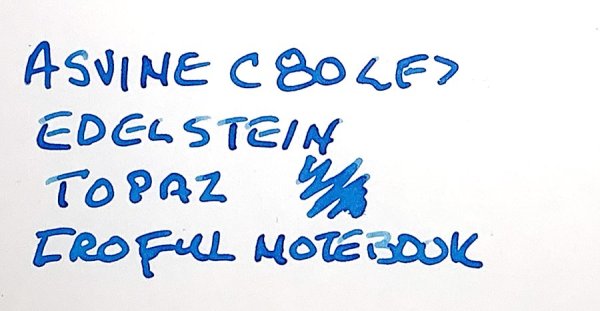 ASVINE C80 <F>
EDELSTEIN
TOPAZ
EROFUL NOTEBOOK